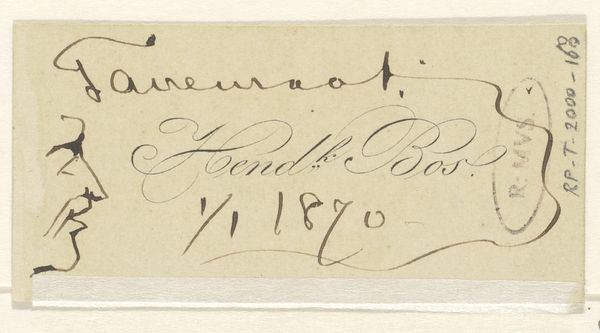 Hendk. Bos.
1/1 1870
R: MVS.
RP-T-2000-163